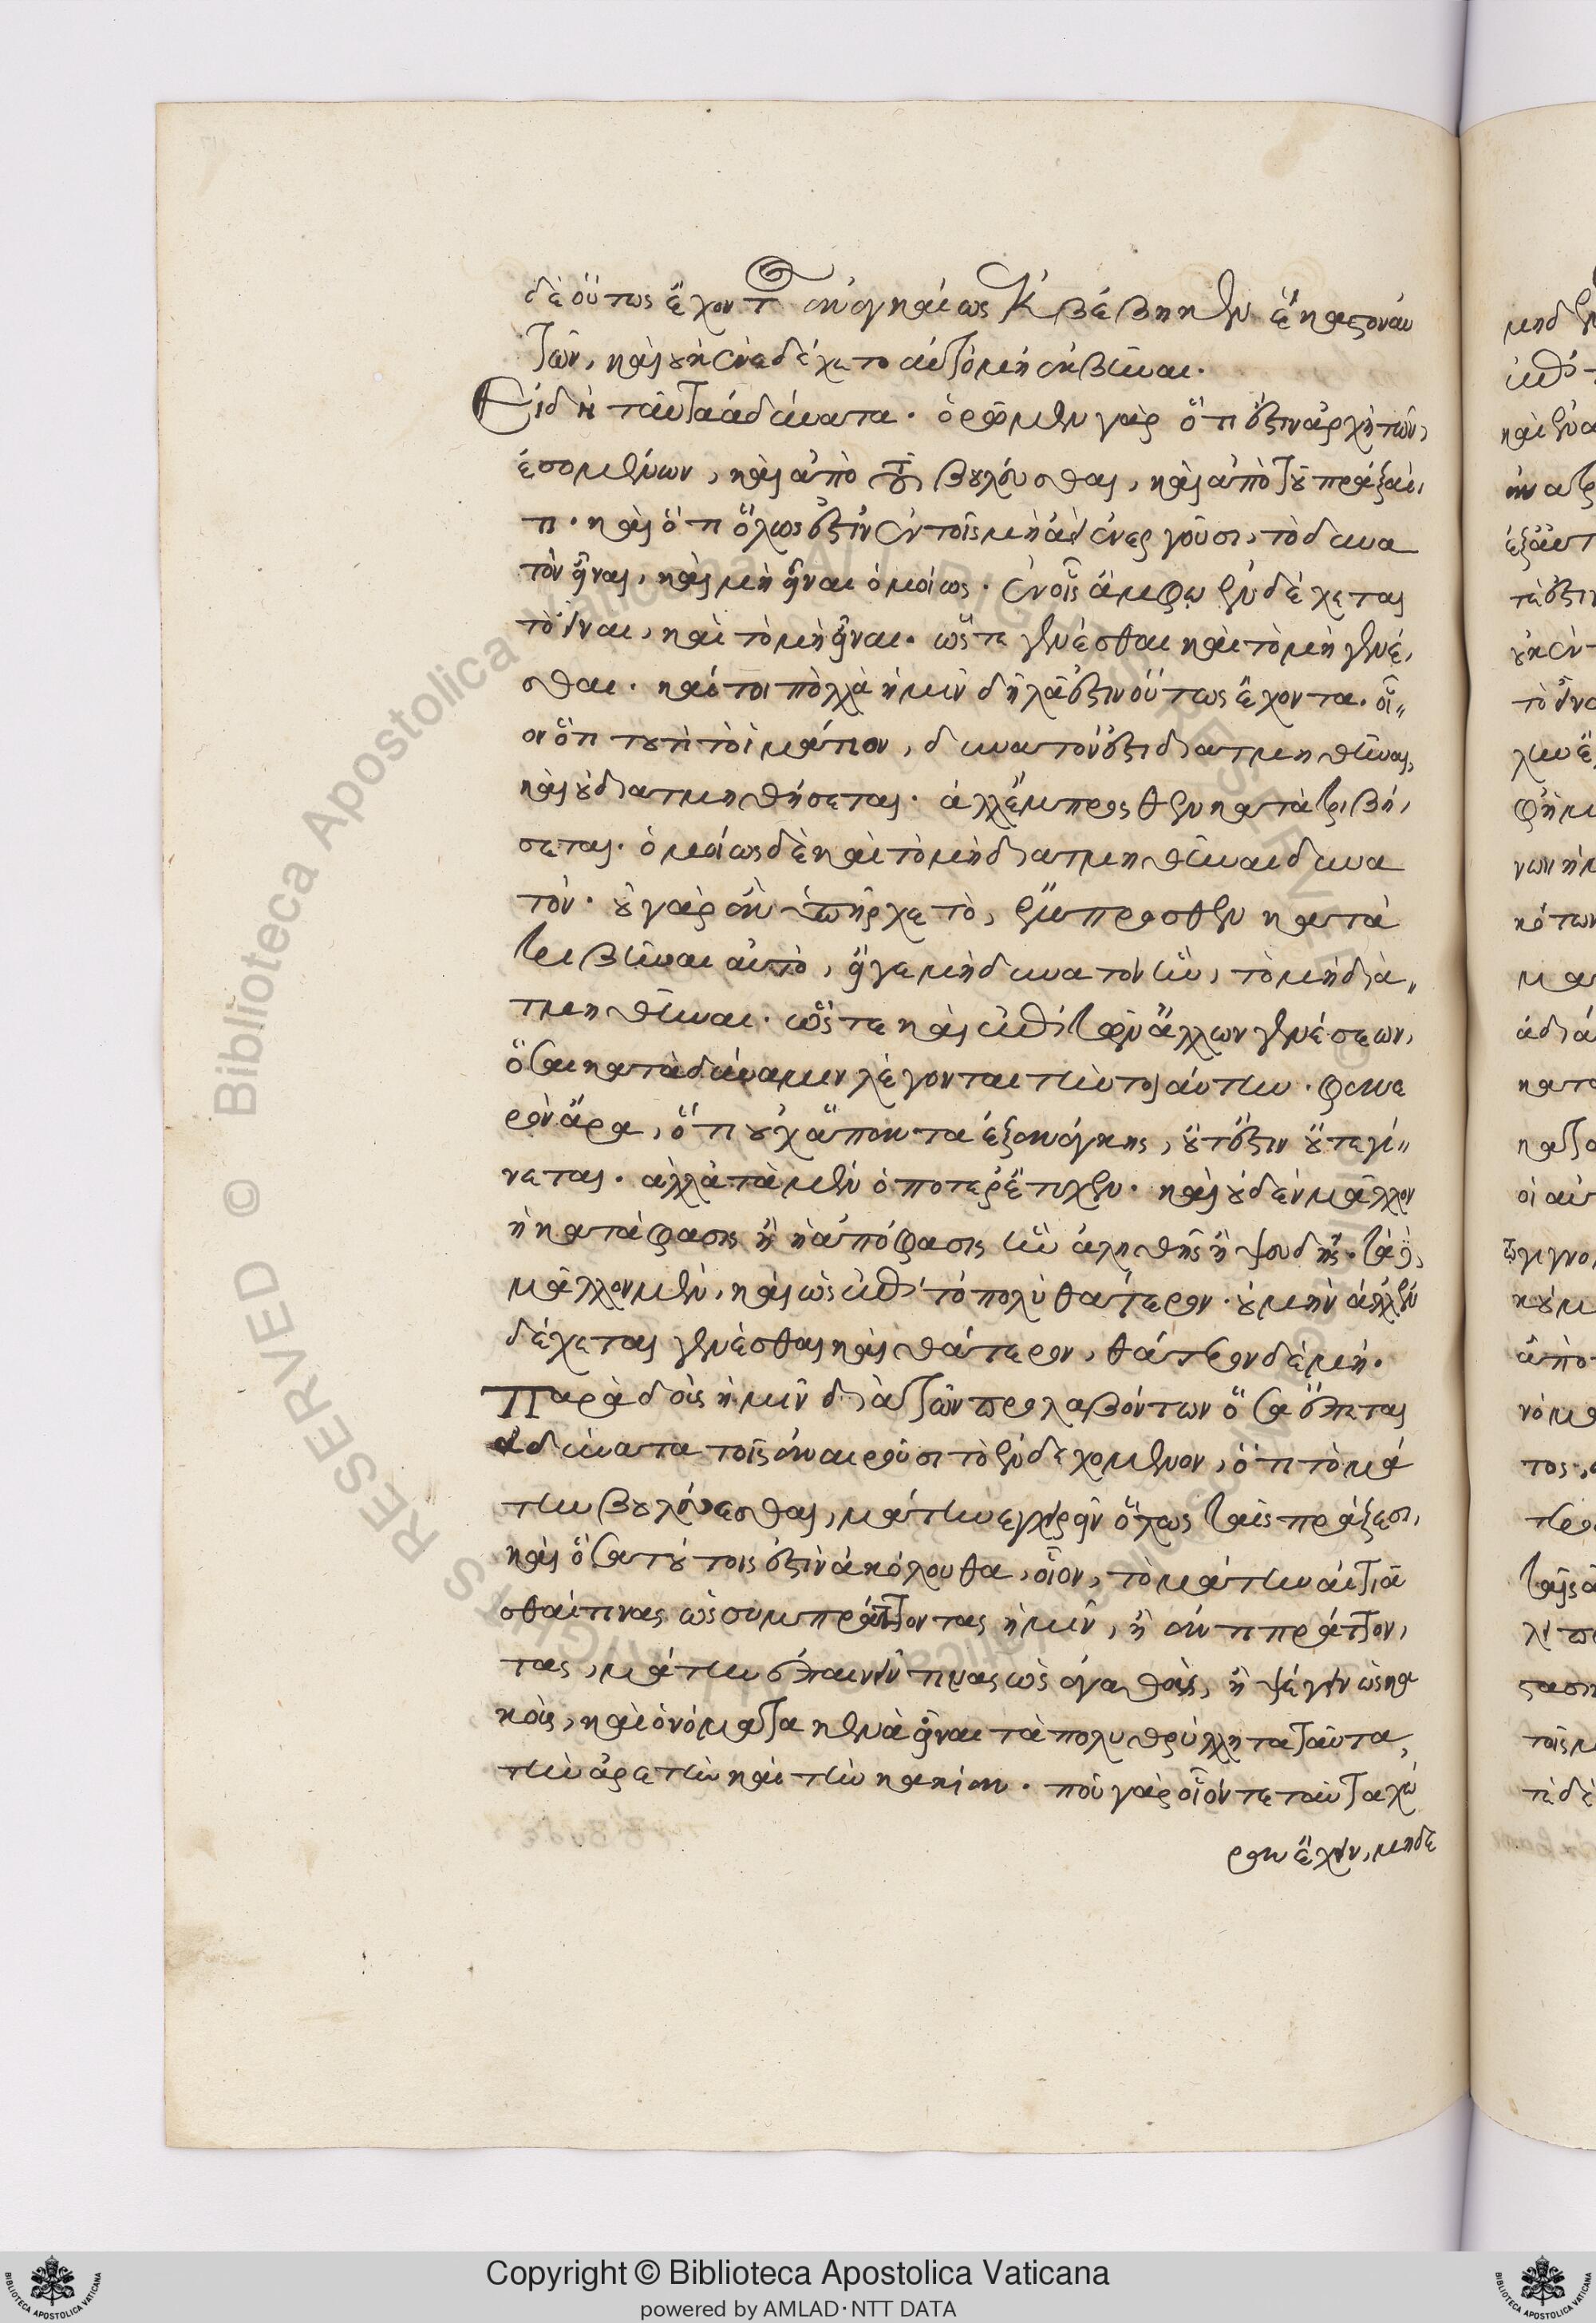 δὲ οὕτως ἔχον τ ἀναγκαίως κβέβηκεν ἕκαστον αὐ
τῶν, καὶ οὐκ ἐνεδέχετο αὐτὸ μὴ ἐκβῆναι.
Εἰ δὴ ταῦτα ἀδύνατα. ὁρῶμεν γὰρ ὅτι ἔστιν ἀρχὴ τῶν,
ἐσομένων, καὶ ἀπὸ τοῦ, βουλεύσθαι, καὶ ἀπὸ τοῦ πράξαί,
τι. καὶ ὅτι ὅλως ἔστιν ἐν τοῖς μὴ ἀεὶ ἐνεργοῦσι, τὸ δυνα
τὸν εἶναι, καὶ μὴ εἶναι ὁμοίως. ἐν οἷς ἄμφω ἐνδέχεται
τὸ εἶναι, καὶ τὸ μὴ εἶναι. ὥστε γενέσθαι καὶ τὸ μὴ γενέ,
σθαι. καίτοι πολλὰ ἡμῖν δῆλά ἐστιν οὕτως ἔχοντα. οἷ,,
ον ὅτι τουτὶ τὸ ἱμάτιον, δυνατόν ἐστι διατμηθῆναι,
καὶ οὐ διατμηθήσεται. ἀλλ' ἔμπροσθεν κατατριβή,
σεται. ὁμοίως δὲ καὶ τὸ μὴ διατμηθῆναι δυνα
τόν. οὐ γὰρ ἂν ὑπῆρχε τὸ, ἔμπροσθεν κατα
τριβῆναι αὐτὸ, εἴγε μὴ δυνατὸν ἦν, τὸ μὴ δια,,
τμηθῆναι. ὥστε καὶ ἐπὶ τῶν ἄλλων γενέσεων,
ὅσαι κατὰ δύναμιν λέγονται τὴν τοιαύτην. φανε
ρὸν ἄρα, ὅτι οὐχ ἅπαντα ἐξ ἀνάγκης, οὔτ' ἔστιν οὔτε γί,,
νεται. ἀλλὰ τὰ μὲν ὁπότερ' ἔτυχεν. καὶ οὐδὲν μᾶλλον
ἡ κατάφασις ἢ ἡ ἀπόφασις ἦν ἀληθὴς ἢ ψευδής. τὰ δὲ,
μᾶλλον μὲν, καὶ ὡς ἐπὶ τὸ πολὺ θάτερον. οὐ μὴν ἀλλ' ἐν
δέχεται γενέσθαι καὶ θάτερον, θάτερον δὲ μή.
Παραδοὺς ἡμῖν διὰ τῶν προλαβόντων ὅσα ἕπεται
ἀδύνατα τοῖς ἀναιροῦσι τὸ ἐνδεχόμενον, ὅτι τὸ μά
την βουλεύεσθαι, μάτην ἐγχειρεῖν ὅλως ταῖς πράξεσι,
καὶ ὅσα τούτοις ἐστὶν ἀκόλουθα, οἷον, τὸ μάτην αἰτιᾶ
σθαί τινας ὡς συμπράττοντας ἡμῖν, ἢ ἀντιπράττον,
τας, μάτην ἐπαινεῖν τινας ὡς ἀγαθοὺς, ἢ ψέγειν ὡς κα
κοὺς, καὶ ὀνόματα κενὰ εἶναι τὰ πολυθρύλλητα ταῦτα,
τὴν ἀρετὴν καὶ τὴν κακίαν. ποῦ γὰρ οἷόν τε ταῦτα χώ
ραν ἔχειν, μηδὲ
Copyright © Biblioteca Apostolica Vaticana
powered by AMLAD·NTT DATA